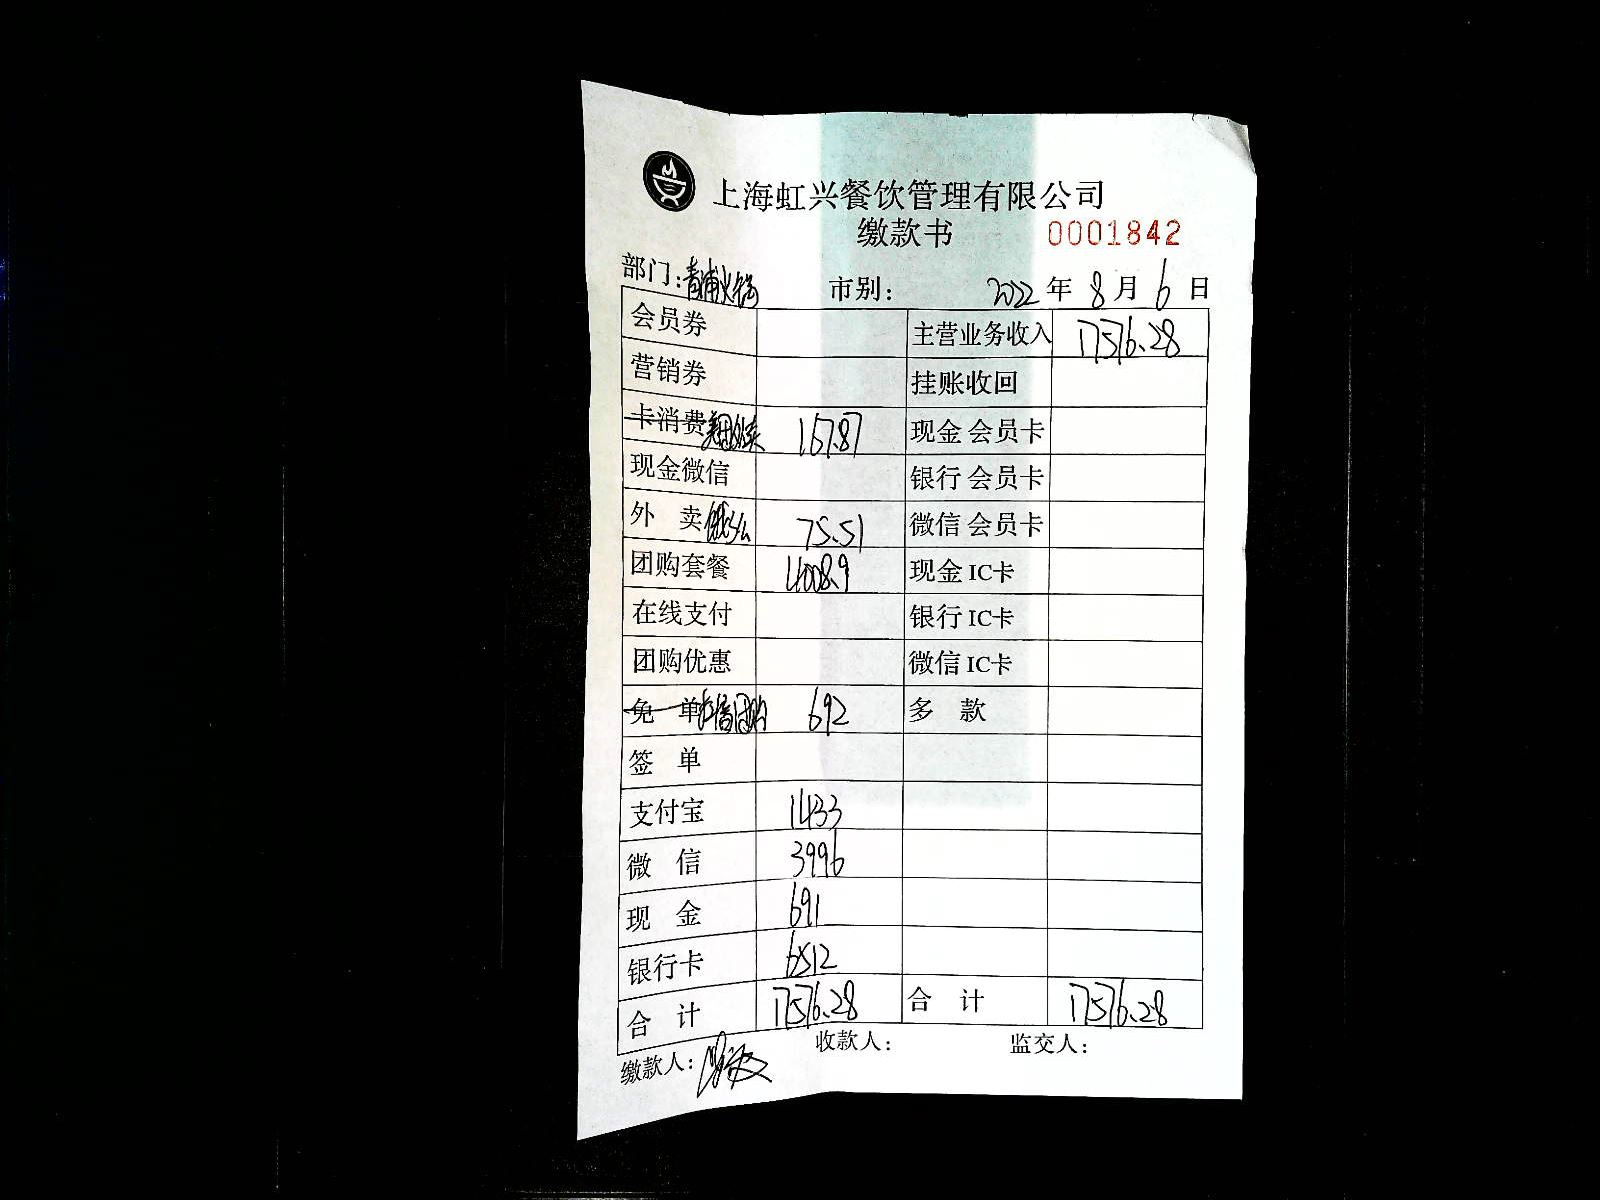 上海虹兴餐饮管理有限公司
缴款书 0001842
部门:青浦火锅 市别: 2022年8月6日
会员券 主营业务收入 17576.28
营销券 挂账收回
卡消费美团外卖 167.87 现金 会员卡
现金微信 银行 会员卡
外 卖饿了么 75.51 微信 会员卡
团购套餐 4008.9 现金 IC卡
在线支付 银行 IC卡
团购优惠 微信 IC卡
免 单抖音团购 692 多 款
签 单
支付宝 1433
微 信 3996
现 金 691
银行卡 6512
合 计 17576.28 合 计 17576.28
缴款人: 收款人: 监交人: